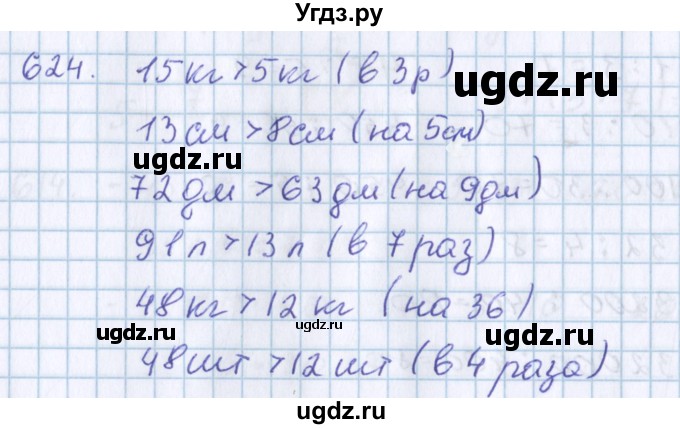 Угдз.ру
624. 15кг > 5кг (в 3р)
ugdz.ru
13см > 8см (на 5см)
ugdz.ru
72дм > 63дм (на 9дм)
91л > 13л (в 7раз)
48кг > 12кг (на 36)
ugdz.ru
ugdz.ru
48шт > 12шт (в 4 раза)
ugdz.ru